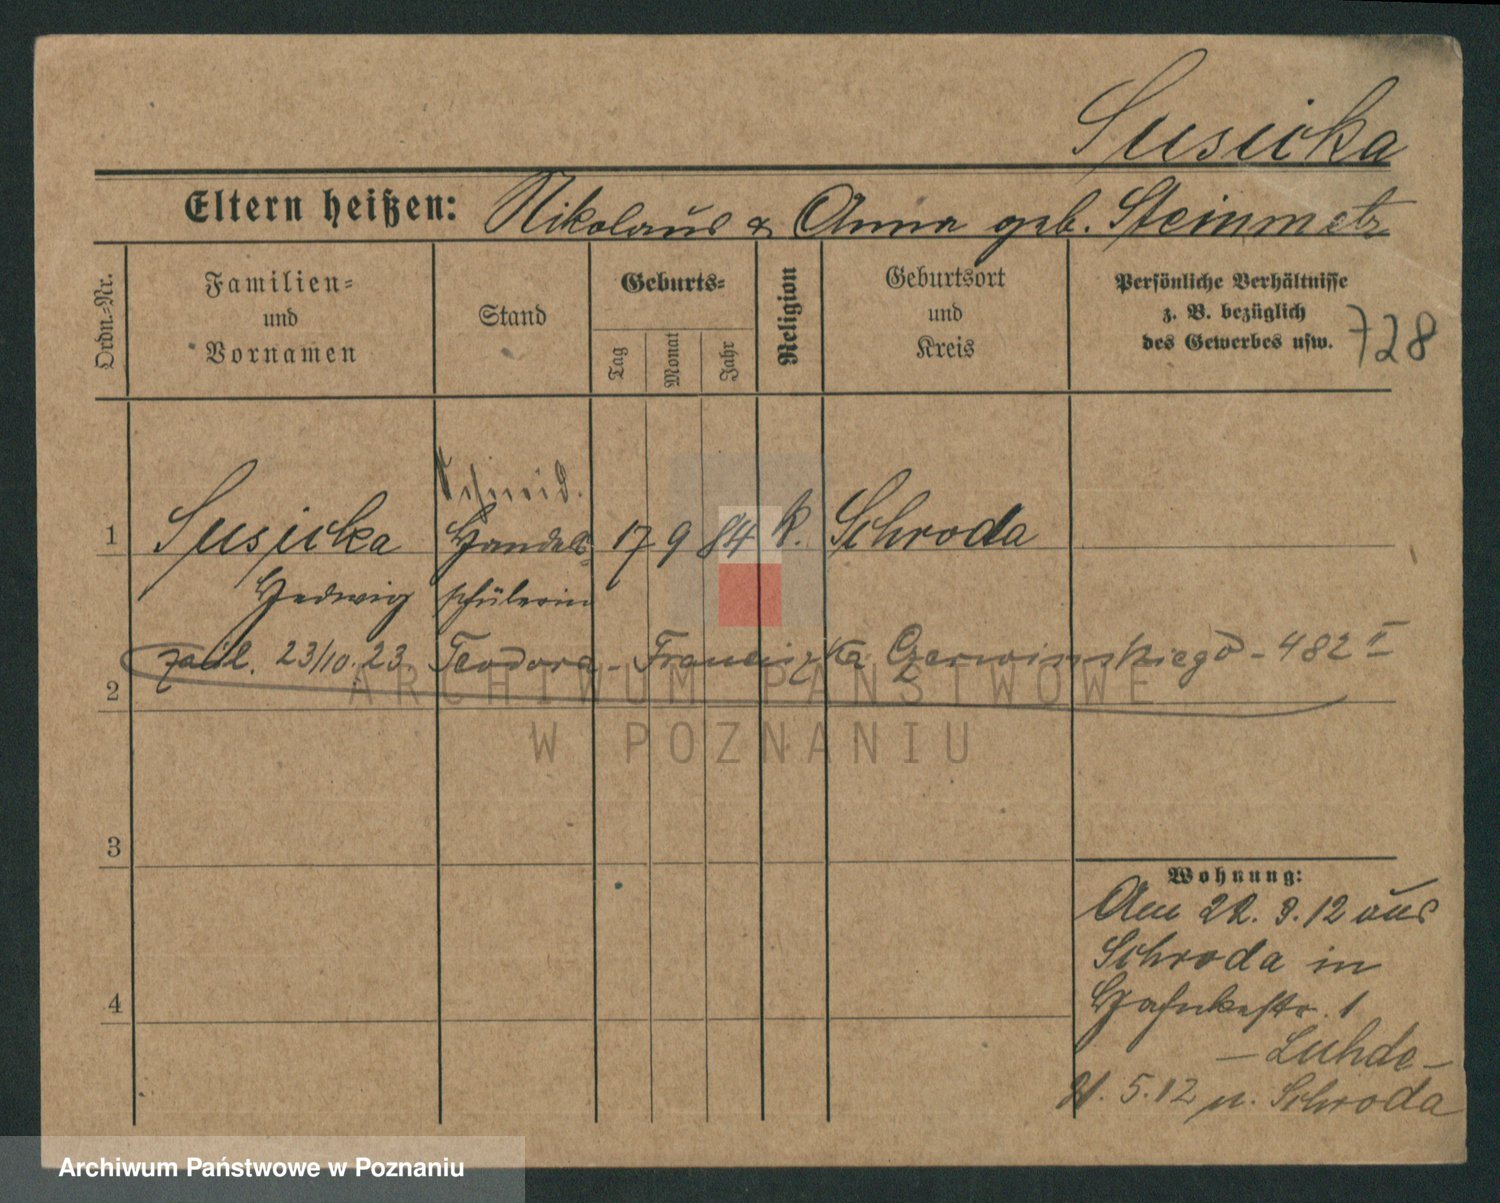 Susicka
Eltern heißen: Nikolaus & Anna geb. Steinmetz
Ordn.-Nr.
Familien-
und
Vornamen
Stand
Geburts-
Tag
Monat
Jahr
Religion
Geburtsort
und
Kreis
Persönliche Verhältnisse
z. B. bezüglich
des Gewerbes usw.
728
Schneid.
1 Susicka Handels 17 9 84 k. Schroda
Hedwig schülerin
23/10.23. Teodora - Franciszka Czerwinskiego - 482 II
2
3
4
Wohnung:
Am 22. 3. 12 aus
Schroda in
1
- Luhde -
21. 5. 12 n. Schroda
ARCHIWUM PAŃSTWOWE
W POZNANIU
Archiwum Państwowe w Poznaniu